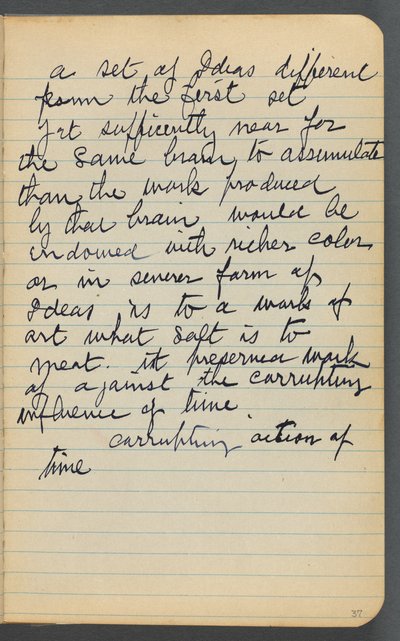 a set of Ideas different
from the first set
yet sufficently near for
the same brain, to assumulate
than the work produced
by that brain would be
endowed with richer color
or in severer farm of
Ideas is to a work of
art what salt is to
meat. it preserves work
of against the corrupting
influence of time.
corrupting action of
time
37